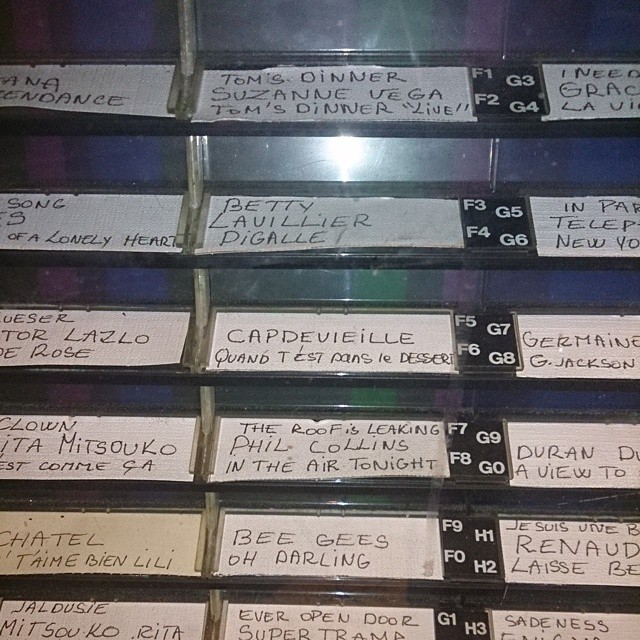 TOM'S DINNER
SUZANNE VEGA
TOM'S DINNER "LIVE"
F1 G3
F2 G4
I NEED
GRAC
LA VI
ENDANCE
SONG
ES
OF A LONELY HEART
BETTY
LAVILLIER
PIGALLE
F3 G5
F4 G6
IN PAR
TELEP
NEW YO
UESER
TOR LAZLO
DE ROSE
CAPDEVIEILLE
QUAND T'ÉST DANS le DESSERT
F5 G7
F6 G8
GERMAINE
G.JACKSON
CLOWN
RITA MITSOUKO
EST COMME ÇA
THE ROOF is LEAKING
PHIL COLLINS
IN THE AIR TONIGHT
F7 G9
F8 G0
DURAN DU
A VIEW TO
CHATEL
T'AIME BIEN LILI
BEE GEES
OH DARLING
F9 H1
F0 H2
JE SUIS UNE B
RENAUD
LAISSE BE
JALOUSIE
MITSOUKO .RITA
EVER OPEN DOOR
SUPER TRAMP
G1 H3
SADENESS